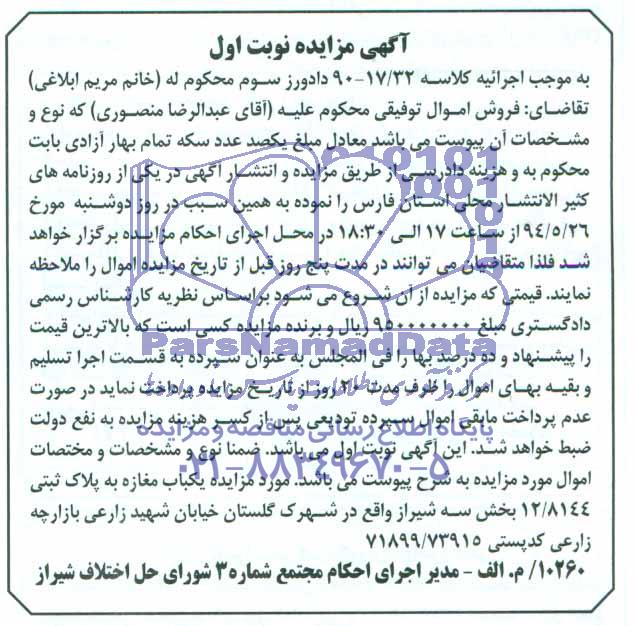 آگهی مزایده نوبت اول
به موجب اجرائیه کلاسه ۹۰-۱۷/۳۲ دادورز سوم محکوم له (خانم مریم ابلاغی)
تقاضای: فروش اموال توقیفی محکوم علیه (آقای عبدالرضا منصوری) که نوع و
مشخصات آن پیوست می باشد معادل مبلغ یکصد عدد سکه تمام بهار آزادی بابت
محکوم به و هزینه دادرسی از طریق مزایده و انتشار آگهی در یکی از روزنامه های
کثیر الانتشار محلی استان فارس را نموده به همین سبب در روز دوشنبه مورخ
۹۴/۵/۲۶ از ساعت ۱۷ الی ۱۸:۳۰ در محل اجرای احکام مزایده برگزار خواهد
شد فلذا متقاضیان می توانند در مدت پنج روز قبل از تاریخ مزایده اموال را ملاحظه
نمایند. قیمتی که مزایده از آن شروع می شود براساس نظریه کارشناس رسمی
دادگستری مبلغ ۹۵۰۰۰۰۰۰۰۰ ریال و برنده مزایده کسی است که بالاترین قیمت
ParsNamadData
را پیشنهاد و ده درصد بها را فی المجلس به عنوان سپرده به قسمت اجرا تسلیم
و بقیه بهای اموال را ظرف مدت ۲۰ روز از تاریخ مزایده پرداخت نماید در صورت
عدم پرداخت مابقی اموال سپرده تودیعی پس از کسر هزینه مزایده به نفع دولت
پایگاه اطلاع رسانی مناقصه و مزایده
ضبط خواهد شد. این آگهی نوبت اول می باشد. ضمنا نوع و مشخصات و مختصات
۰۲۱-۸۸۳۴۹۶۷۰-۵
اموال مورد مزایده به شرح پیوست می باشد. مورد مزایده یکباب مغازه به پلاک ثبتی
۱۲/۸۱۴۴ بخش سه شیراز واقع در شهرک گلستان خیابان شهید زارعی بازارچه
زارعی کدپستی ۷۱۸۹۹/۷۳۹۱۵
۱۰۲۶۰/ م. الف - مدیر اجرای احکام مجتمع شماره ۳ شورای حل اختلاف شیراز